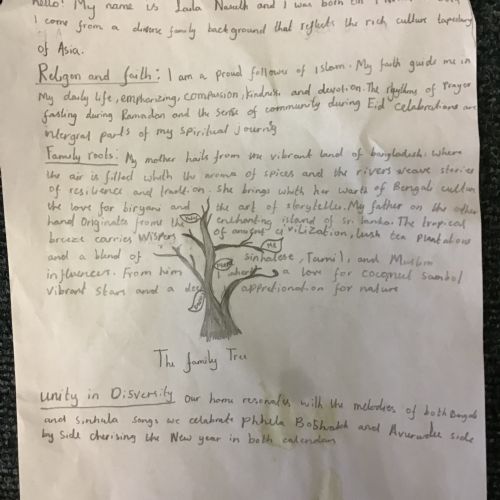 hello! My name is Laila Nasuth and I was born on
I come from a diverse family background that reflects the rich culture tapestry
of Asia.
Religon and faith: I am a proud follower of Islam. My faith guide me in
My daily life, emphorizing, compassion, kindness and devotion. The rhythms of Prayer
fasting during Ramadan and the sense of community during Eid celabrations are
intergral parts of my spiritual journy
Family roots: My mother hails from the vibrant land of bangladesh. where
the air is filled whith the aroma of spices and the rivers weave stories
of resilience and tradition. She brings whith her warts of Bengali culture
the love for biryani and the art of storyteller. My father on the other
hand Originates from the enchanting island of Sri Lanka. The tropical
breeze carries wispers of civilization, lush tea plantations
and a blend of sinhalese, Tamil, and Muslim
influences. From him I inherit a love for coconut Sambol
vibrant Stars and a appretionation for nature
Me
The family Tree
unity in Disversity Our home resonates with the melodies of both Bengali
and Sinhala songs we celabrate and side
by side cherising the New year in both calendars